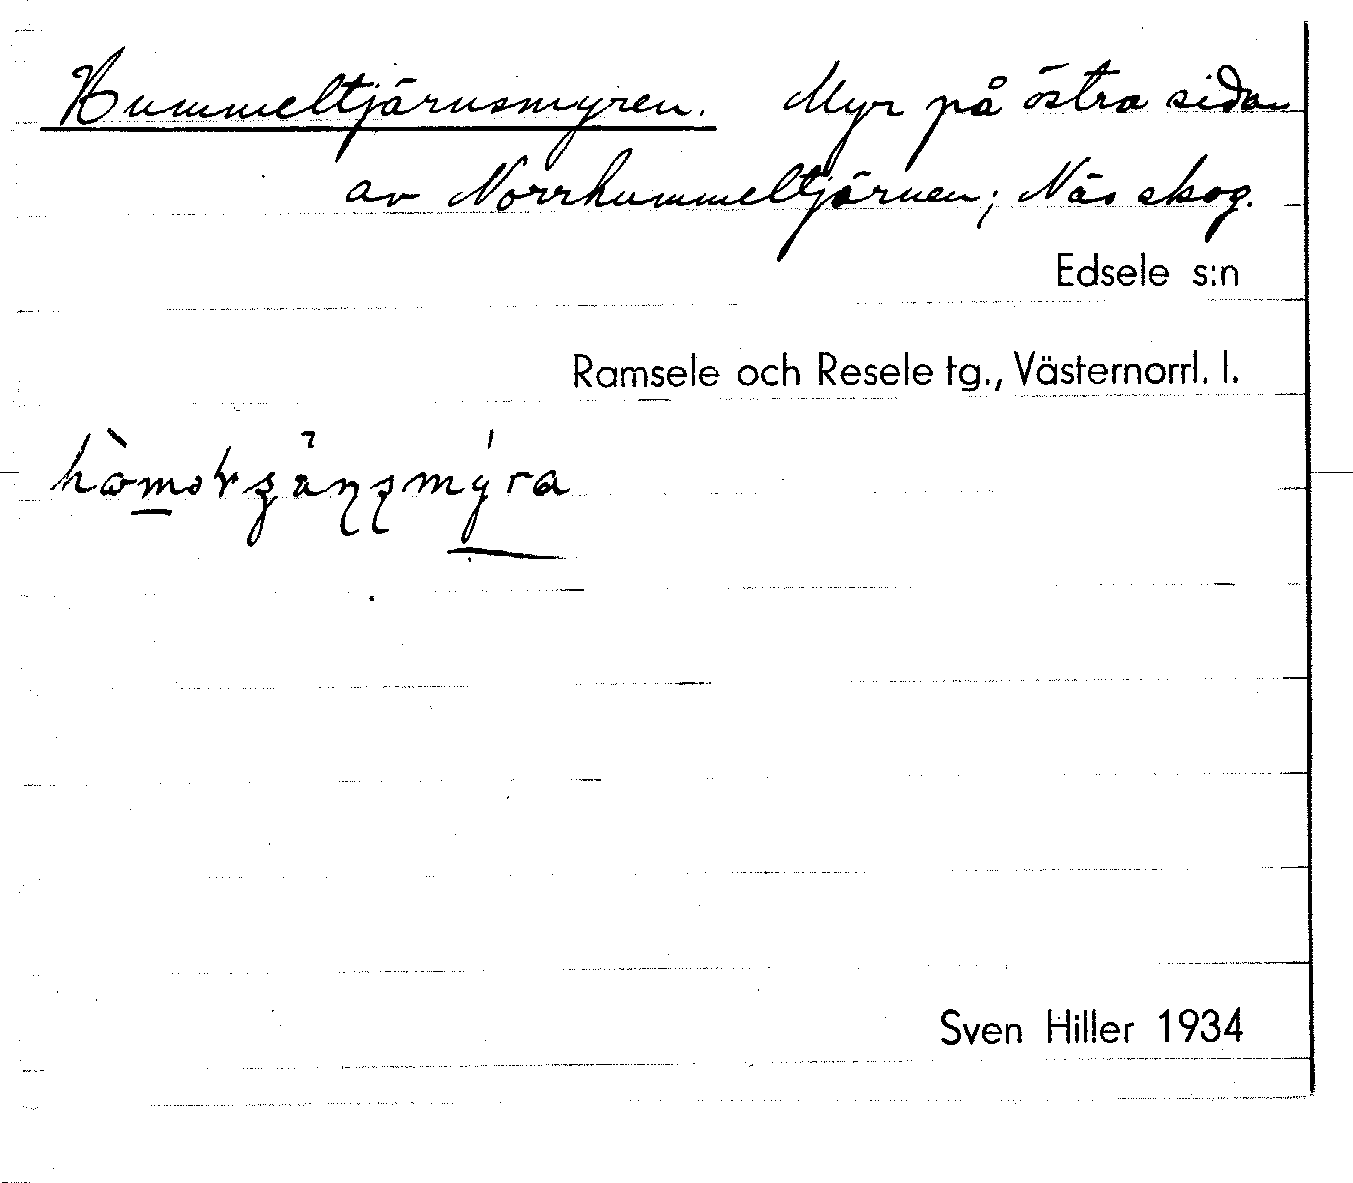 Hummeltjärnsmyren. Myr på östra sidan
av Norrhummeltjärnen; Näs skog.
Edsele s:n
Ramsele och Resele tg., Västernorrl. l.
Sven Hiller 1934